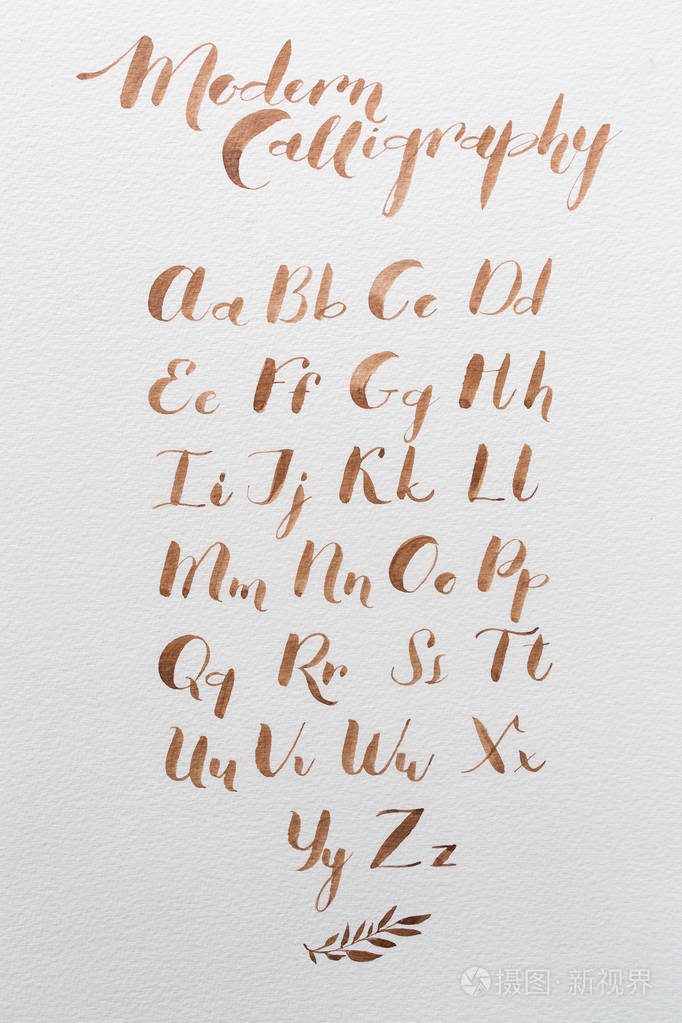 Modern
Calligraphy
Aa Bb Cc Dd
Ee Ff Gg Hh
Ii Jj Kk Ll
Mm Nn Oo Pp
Qq Rr Ss Tt
Uu Vv Ww Xx
Yy Zz
摄图·新视界